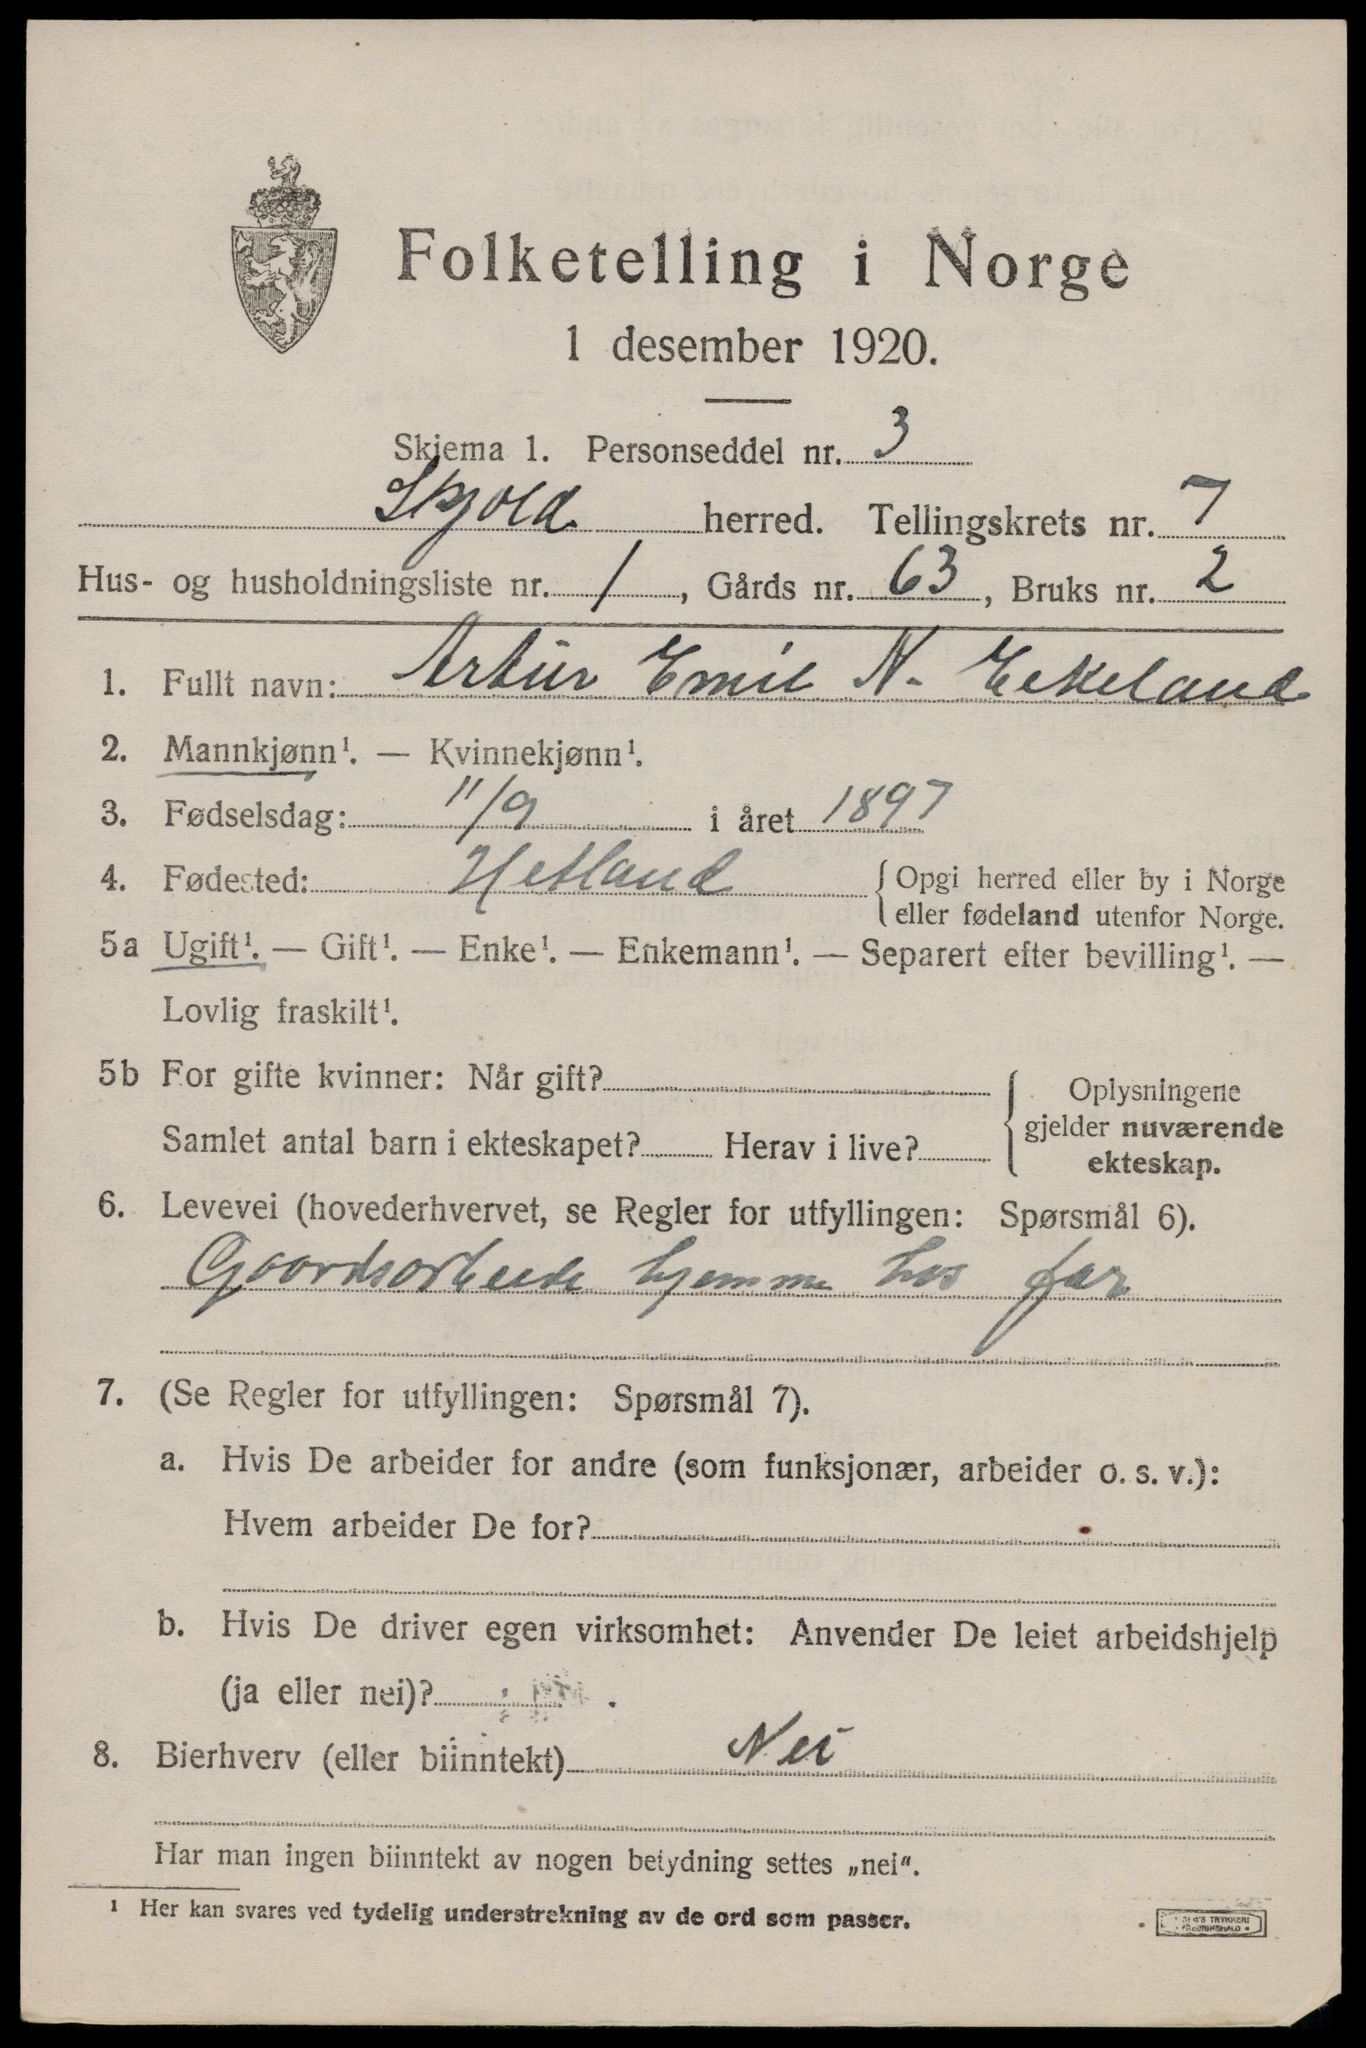 Folketelling i Norge
1 desember 1920.
Skjema 1. Personseddel nr. 3
Skjold herred. Tellingskrets nr. 7
Hus- og husholdningsliste nr. 1, Gårds nr. 63, Bruks nr. 2
1. Fullt navn: Artur Emil N. Eekeland
2. Mannkjønn¹. — Kvinnekjønn¹.
3. Fødselsdag: 11/9 i året 1897
4. Fødested: Hetland { Opgi herred eller by i Norge
eller fødeland utenfor Norge.
5a Ugift¹. — Gift¹. — Enke¹. — Enkemann¹. — Separert efter bevilling¹. —
Lovlig fraskilt¹.
5b For gifte kvinner: Når gift? { Oplysningene
gjelder nuværende
Samlet antal barn i ekteskapet? Herav i live?
ekteskap.
6. Levevei (hovederhvervet, se Regler for utfyllingen: Spørsmål 6).
Gaardsarbeide hjemme hos far
7. (Se Regler for utfyllingen: Spørsmål 7).
a. Hvis De arbeider for andre (som funksjonær, arbeider o. s. v.):
Hvem arbeider De for?
b. Hvis De driver egen virksomhet: Anvender De leiet arbeidshjelp
(ja eller nei)?
8. Bierhverv (eller biinntekt) Nei
Har man ingen biinntekt av nogen betydning settes „nei“.
¹ Her kan svares ved tydelig understrekning av de ord som passer.
TRYKKERI